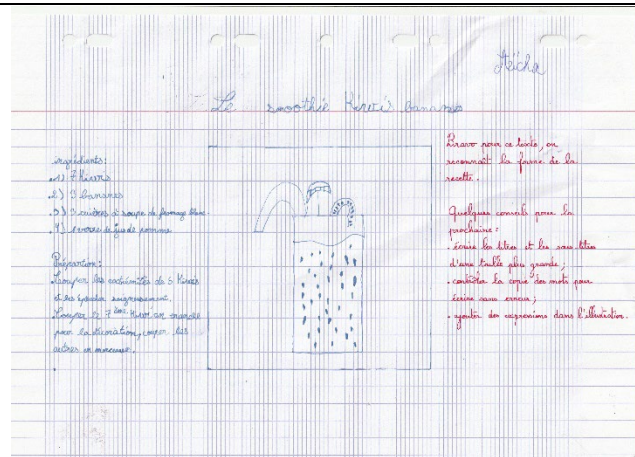 Aïcha
Le smoothie Kiwis bananes
ingrédients:
1) 7 kiwis
2) 3 bananes
3) 3 cuillères à soupe de fromage blanc
4) 1 verre de jus de pomme
Préparation:
Couper les extrémités de 6 Kiwis
et les éplucher soigneusement.
Couper le 7ème Kiwi en
pour la décoration, couper les
autres en morceaux.
Bravo pour ce texte, on
reconnaît la forme de la
recette.
Quelques conseils pour la
prochaine :
. écrire les titres et les sous-titres
d'une taille plus grande ;
. contrôler la copie des mots pour
écrire sans erreur ;
. ajouter des expressions dans l'illustration.